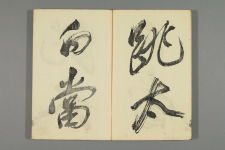 跳太
白當